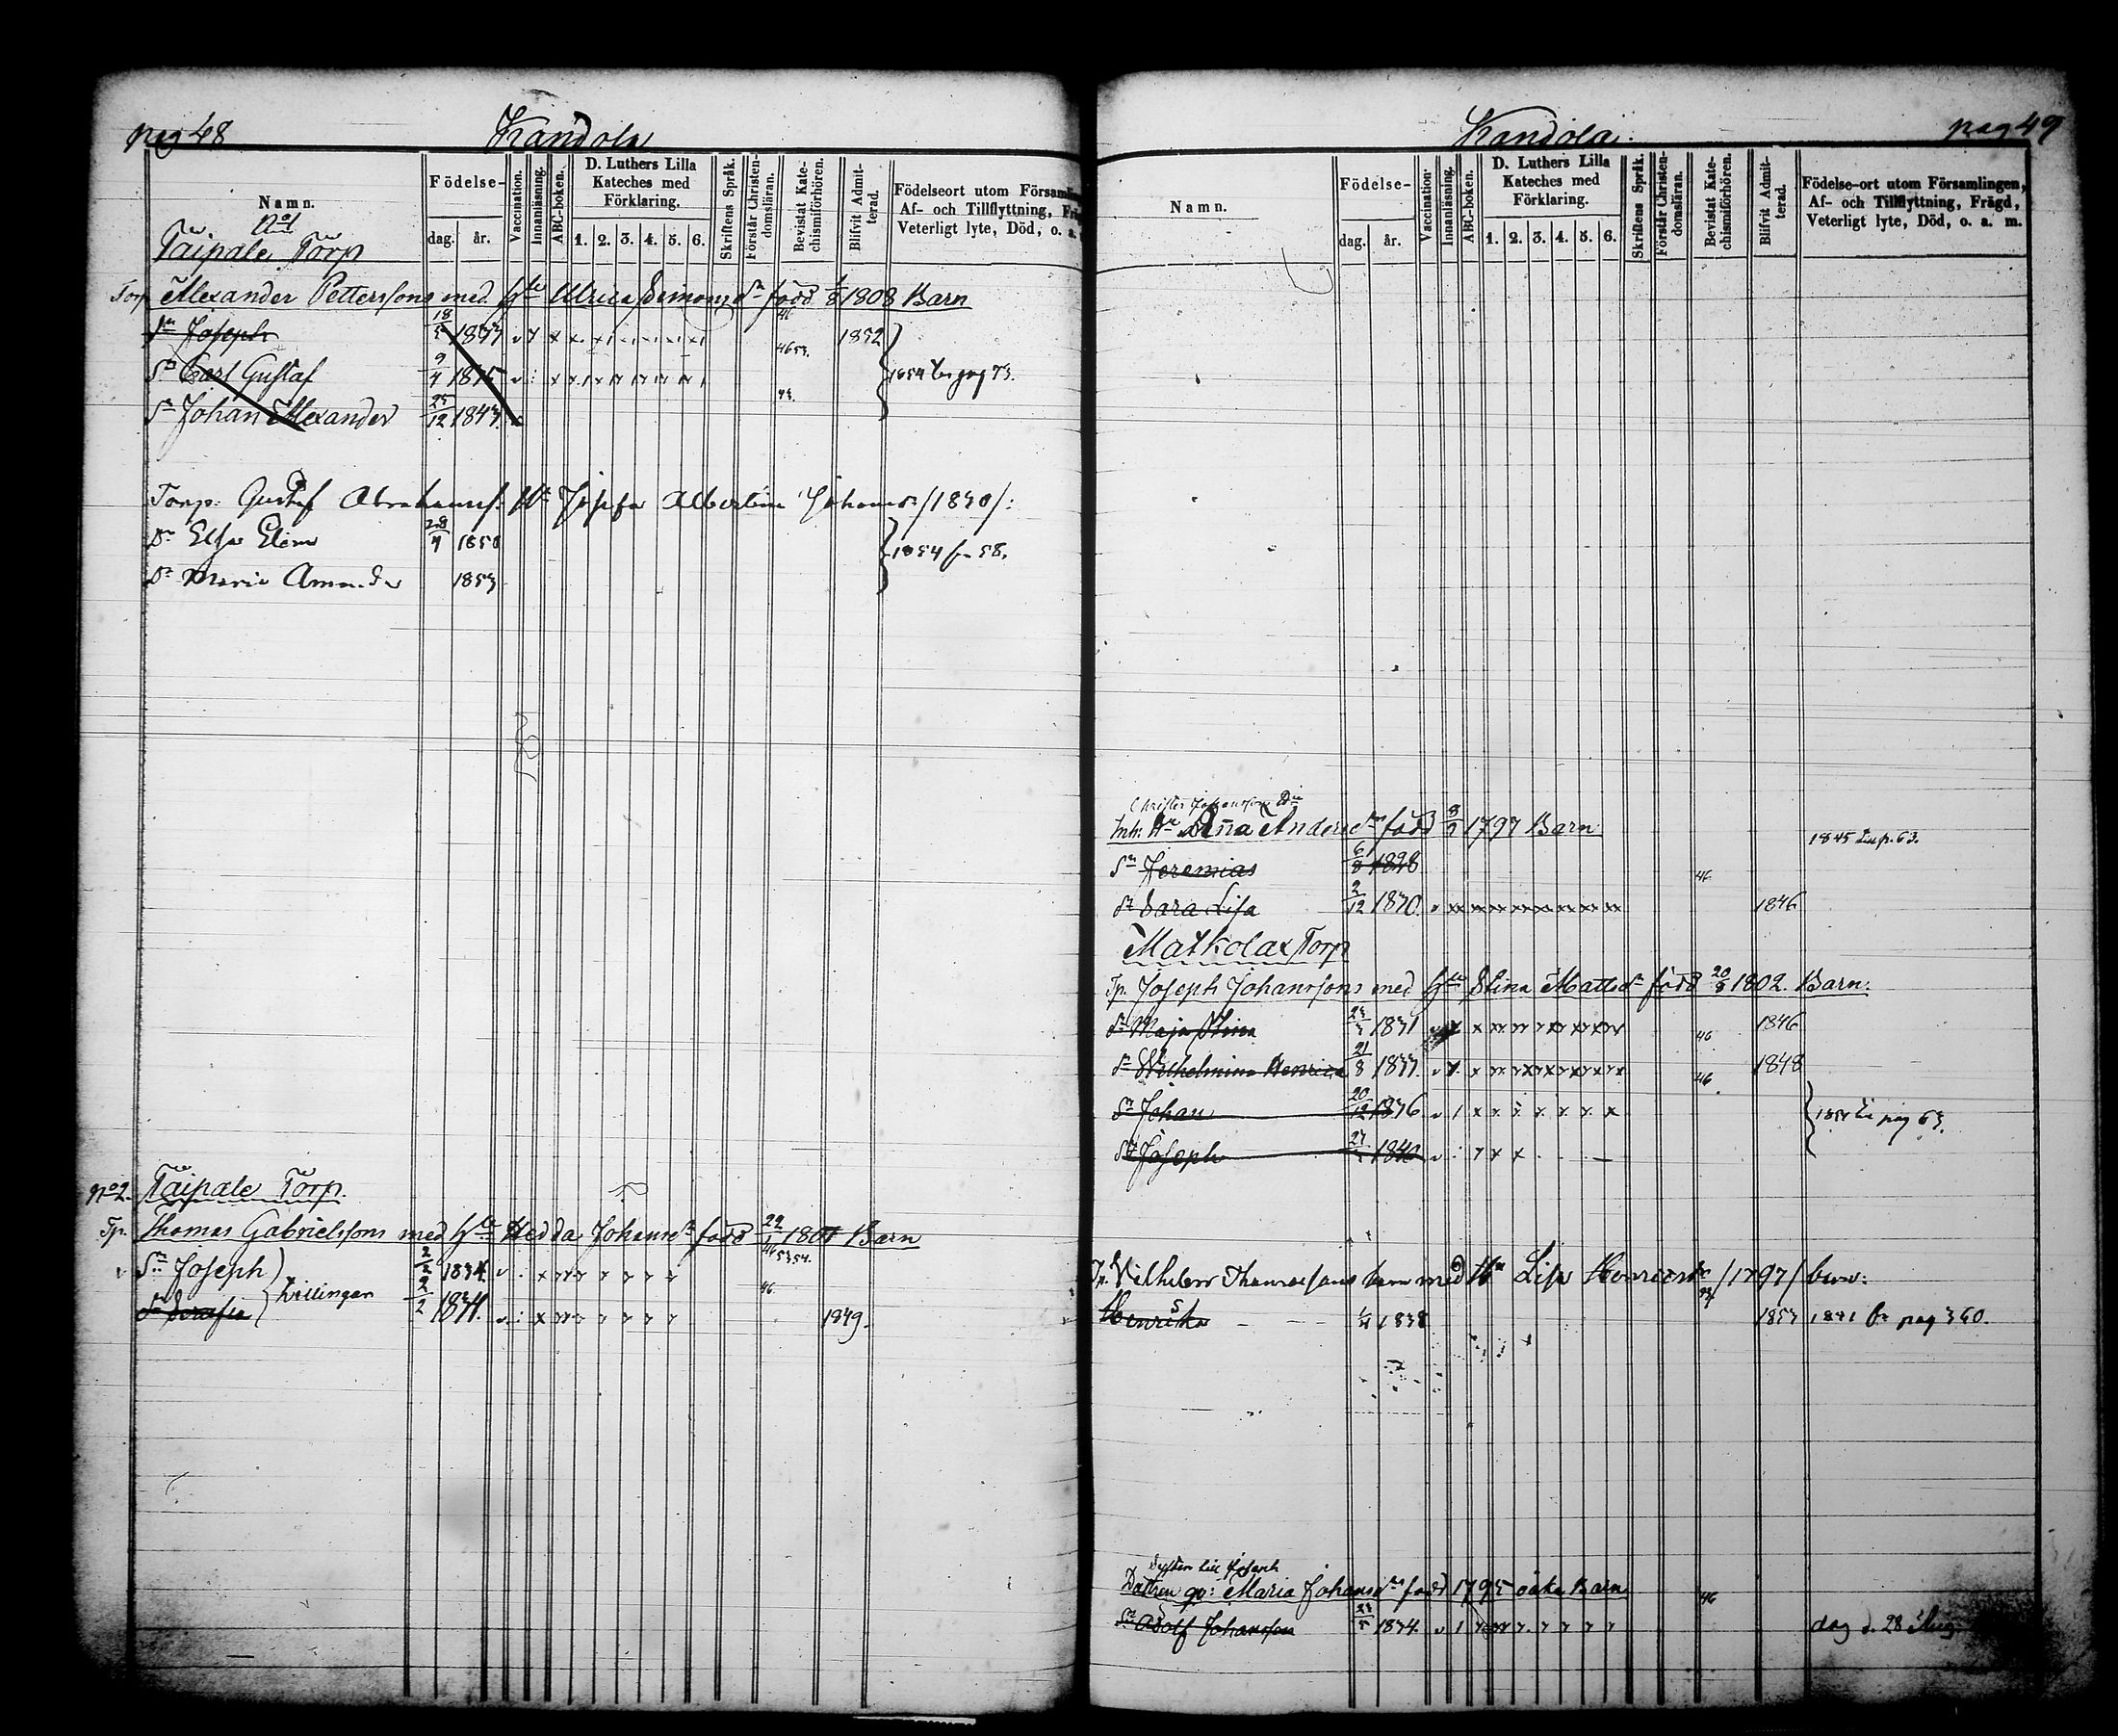 pag 48
Kandola
Namn.
Födelse-
dag.
år.
Vaccination.
Innanläsning.
ABC-boken.
D. Luthers Lilla
Kateches med
Förklaring.
1. 2. 3. 4. 5. 6.
Skriftens Språk.
Förstår Christen-
domsläran.
Bevistat Kate-
chismiförhören.
Blifvit Admit-
terad.
Födelseort utom Församlin
Af- och Tillflyttning, Fr
Veterligt lyte, Död, o. a.
No 1
Taipale Torp
Torp. Alexander Petterssons med Hu Ulrica Simons dr född 1/8 1808 Barn
46
Sn Joseph 18/5 1837 1852
4653.
Sn Carl Gustaf 9/4 1845 1854 pag 73.
Sn Johan Alexander 25/12 1847
Torp: Gustaf Abrahamss. Hu Josefa Albertina Johansdr /1830/:
Dr Elsa Elina 28/9 1850 1854 fr 58.
Dr Maria Amanda 1853
No 2. Taipale Torp.
Tp. Thomas Gabrielssons med Hu Hedda Johansdr född 22/1 1801 Barn
46 53 54.
Sn Joseph 2/2 1834
tvillingar
46
Dr Serafia 2/2 1834. 1849.
Kandola.
pag 49
Namn.
Födelse-
dag.
år.
Vaccination.
Innanläsning.
ABC-boken.
D. Luthers Lilla
Kateches med
Förklaring.
1. 2. 3. 4. 5. 6.
Skriftens Språk.
Förstår Christen-
domsläran.
Bevistat Kate-
chismiförhören.
Blifvit Admit-
terad.
Födelse-ort utom Församlingen,
Af- och Tillflyttning, Frägd,
Veterligt lyte, Död, o. a. m.
Christer Johanssons
Inh: Anna Andersdr född 8/9 1797 Barn
1845 p. 63.
Sn Jeremias 6/8 1828
46
Dr Sara Lisa 2/12 1830. 1846
Matkolax Torp
Tp. Joseph Johanssons med Hu Stina Mattsdr född 20/8 1802. Barn.
Dr Maja Stina 1831 46 1846
Dr Wilhelmina Henrica 21/8 1833. 46 1848
Sn Johan 20/12 1836 pag 63.
Sn Joseph 1840
Tp. Vilhelm Thomassons med Hu Lisa Henricsdr /1797/ barn:
Henrik 1/4 1838 53 1853 1841 fr pag 360.
Syster till Joseph
Dattren qp: Maria Johansdr född 1795 oäkta Barn
46
Sn Adolf Johansson 1834. d. 28 Aug.